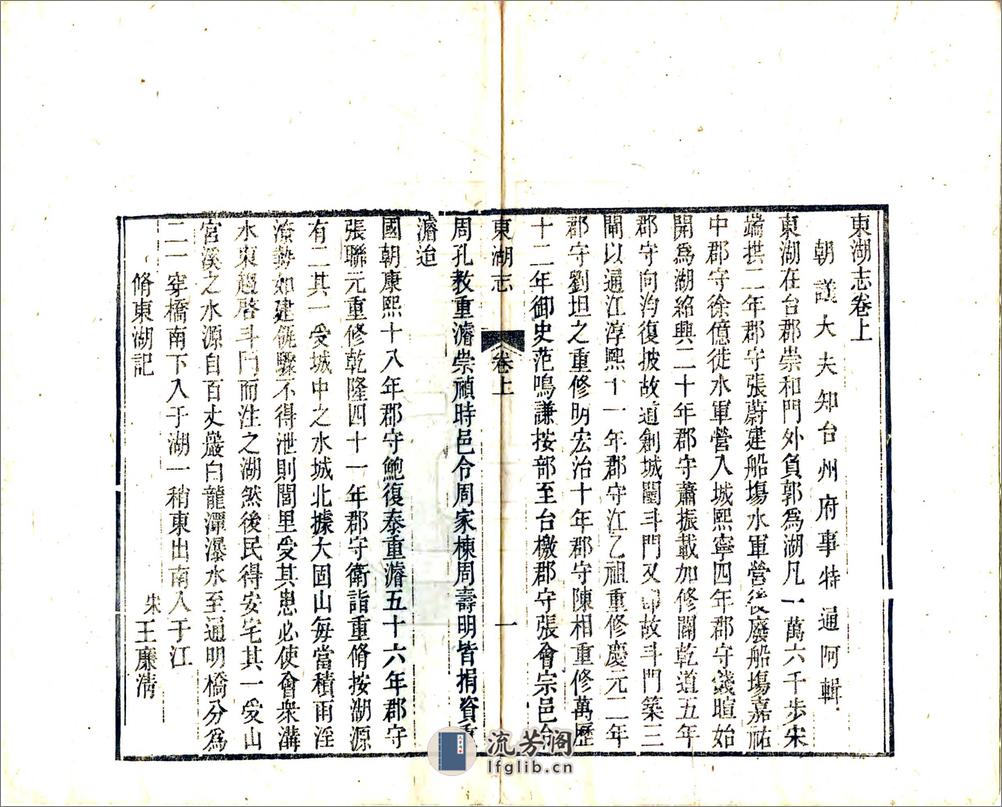 東湖志卷上
朝議大夫知台州府事特通阿輯
東湖在台郡崇和門外負郭爲湖凡一萬六千步宋
端拱二年郡守張蔚建船塲水軍營後廢船塲嘉祐
中郡守徐億徙水軍營入城熙寧四年郡守錢暄始
開爲湖紹興二十年郡守蕭振載加修闢乾道五年
郡守向汮復披故道創城闉斗門又卽故斗門築三
閘以通江淳熙十一年郡守江乙祖重修慶元二年
郡守劉坦之重修明宏治十年郡守陳相重修萬歷
十二年御史范鳴謙按部至台檄郡守張會宗邑令
東湖志
卷上
一
周孔教重濬崇禎時邑令周家棟周壽明皆捐資重
濬迨
國朝康熙十八年郡守鮑復泰重濬五十六年郡守
張聯元重修乾隆四十一年郡守衛詣重脩按湖源
有二其一受城中之水城北據大固山每當積雨淫
潦勢如建瓴驟不得泄則閭里受其患必使會衆溝
水東趨啓斗門而注之湖然後民得安宅其一受山
宮溪之水源自百丈巖白龍潭瀑水至通明橋分爲
二一穿橋南下入于湖一稍東出南入于江
脩東湖記
宋王廉淸
流芳阁
lfglib.cn